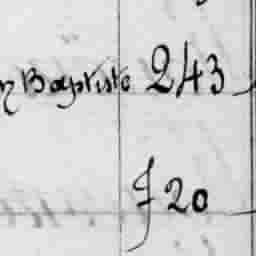 Baptiste 243
f 20